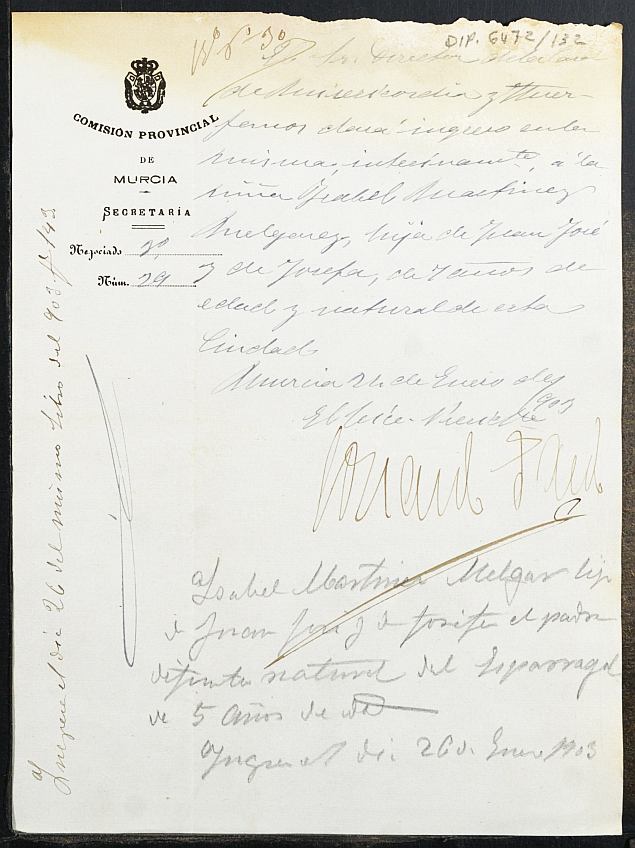 DIP. 6472/132
COMISIÓN PROVINCIAL
DE
MURCIA
SECRETARÍA
Negociado 2º
Núm. 29
Sr. Director de la Casa
de Misericordia y Huér
fanos dará ingreso en la
misma, interinamente, á la
niña Ysabel Martinez
Melgarez, hija de Juan José
y de Josefa, de 7 años de
edad y natural de esta
Ciudad
Murcia 24 de Enero de
1903
El Vice-Presidente
Ysabel Martinez Melgar hija
de Juan José y de Josefa el padre
difunto natural del Esparragal
de 5 años de edad
Yngresó el dia 26 de Enero 1903
Yngresó el dia 26 del mismo Libro del 903 fº 143